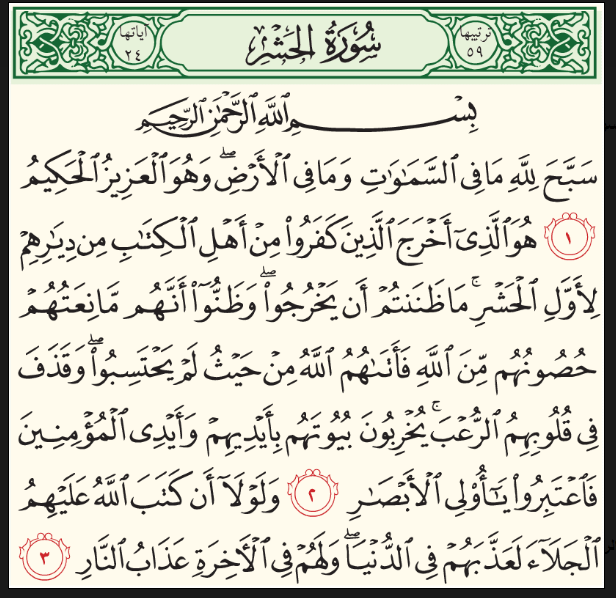 ترتيبها ٥٩ سُورَةُ الحَشْرِ آياتها ٢٤
بِسْمِ ٱللَّهِ ٱلرَّحْمَٰنِ ٱلرَّحِيمِ
سَبَّحَ لِلَّهِ مَا فِي ٱلسَّمَٰوَٰتِ وَمَا فِي ٱلْأَرْضِۖ وَهُوَ ٱلْعَزِيزُ ٱلْحَكِيمُ
١ هُوَ ٱلَّذِيٓ أَخْرَجَ ٱلَّذِينَ كَفَرُوا۟ مِنْ أَهْلِ ٱلْكِتَٰبِ مِن دِيَٰرِهِمْ
لِأَوَّلِ ٱلْحَشْرِۚ مَا ظَنَنتُمْ أَن يَخْرُجُوا۟ۖ وَظَنُّوٓا۟ أَنَّهُم مَّانِعَتُهُمْ
حُصُونُهُم مِّنَ ٱللَّهِ فَأَتَىٰهُمُ ٱللَّهُ مِنْ حَيْثُ لَمْ يَحْتَسِبُوا۟ۖ وَقَذَفَ
فِي قُلُوبِهِمُ ٱلرُّعْبَۚ يُخْرِبُونَ بُيُوتَهُم بِأَيْدِيهِمْ وَأَيْدِي ٱلْمُؤْمِنِينَ
فَٱعْتَبِرُوا۟ يَٰٓأُو۟لِي ٱلْأَبْصَٰرِ ٢ وَلَوْلَآ أَن كَتَبَ ٱللَّهُ عَلَيْهِمُ
ٱلْجَلَآءَ لَعَذَّبَهُمْ فِي ٱلدُّنْيَاۖ وَلَهُمْ فِي ٱلْأَخِرَةِ عَذَابُ ٱلنَّارِ ٣